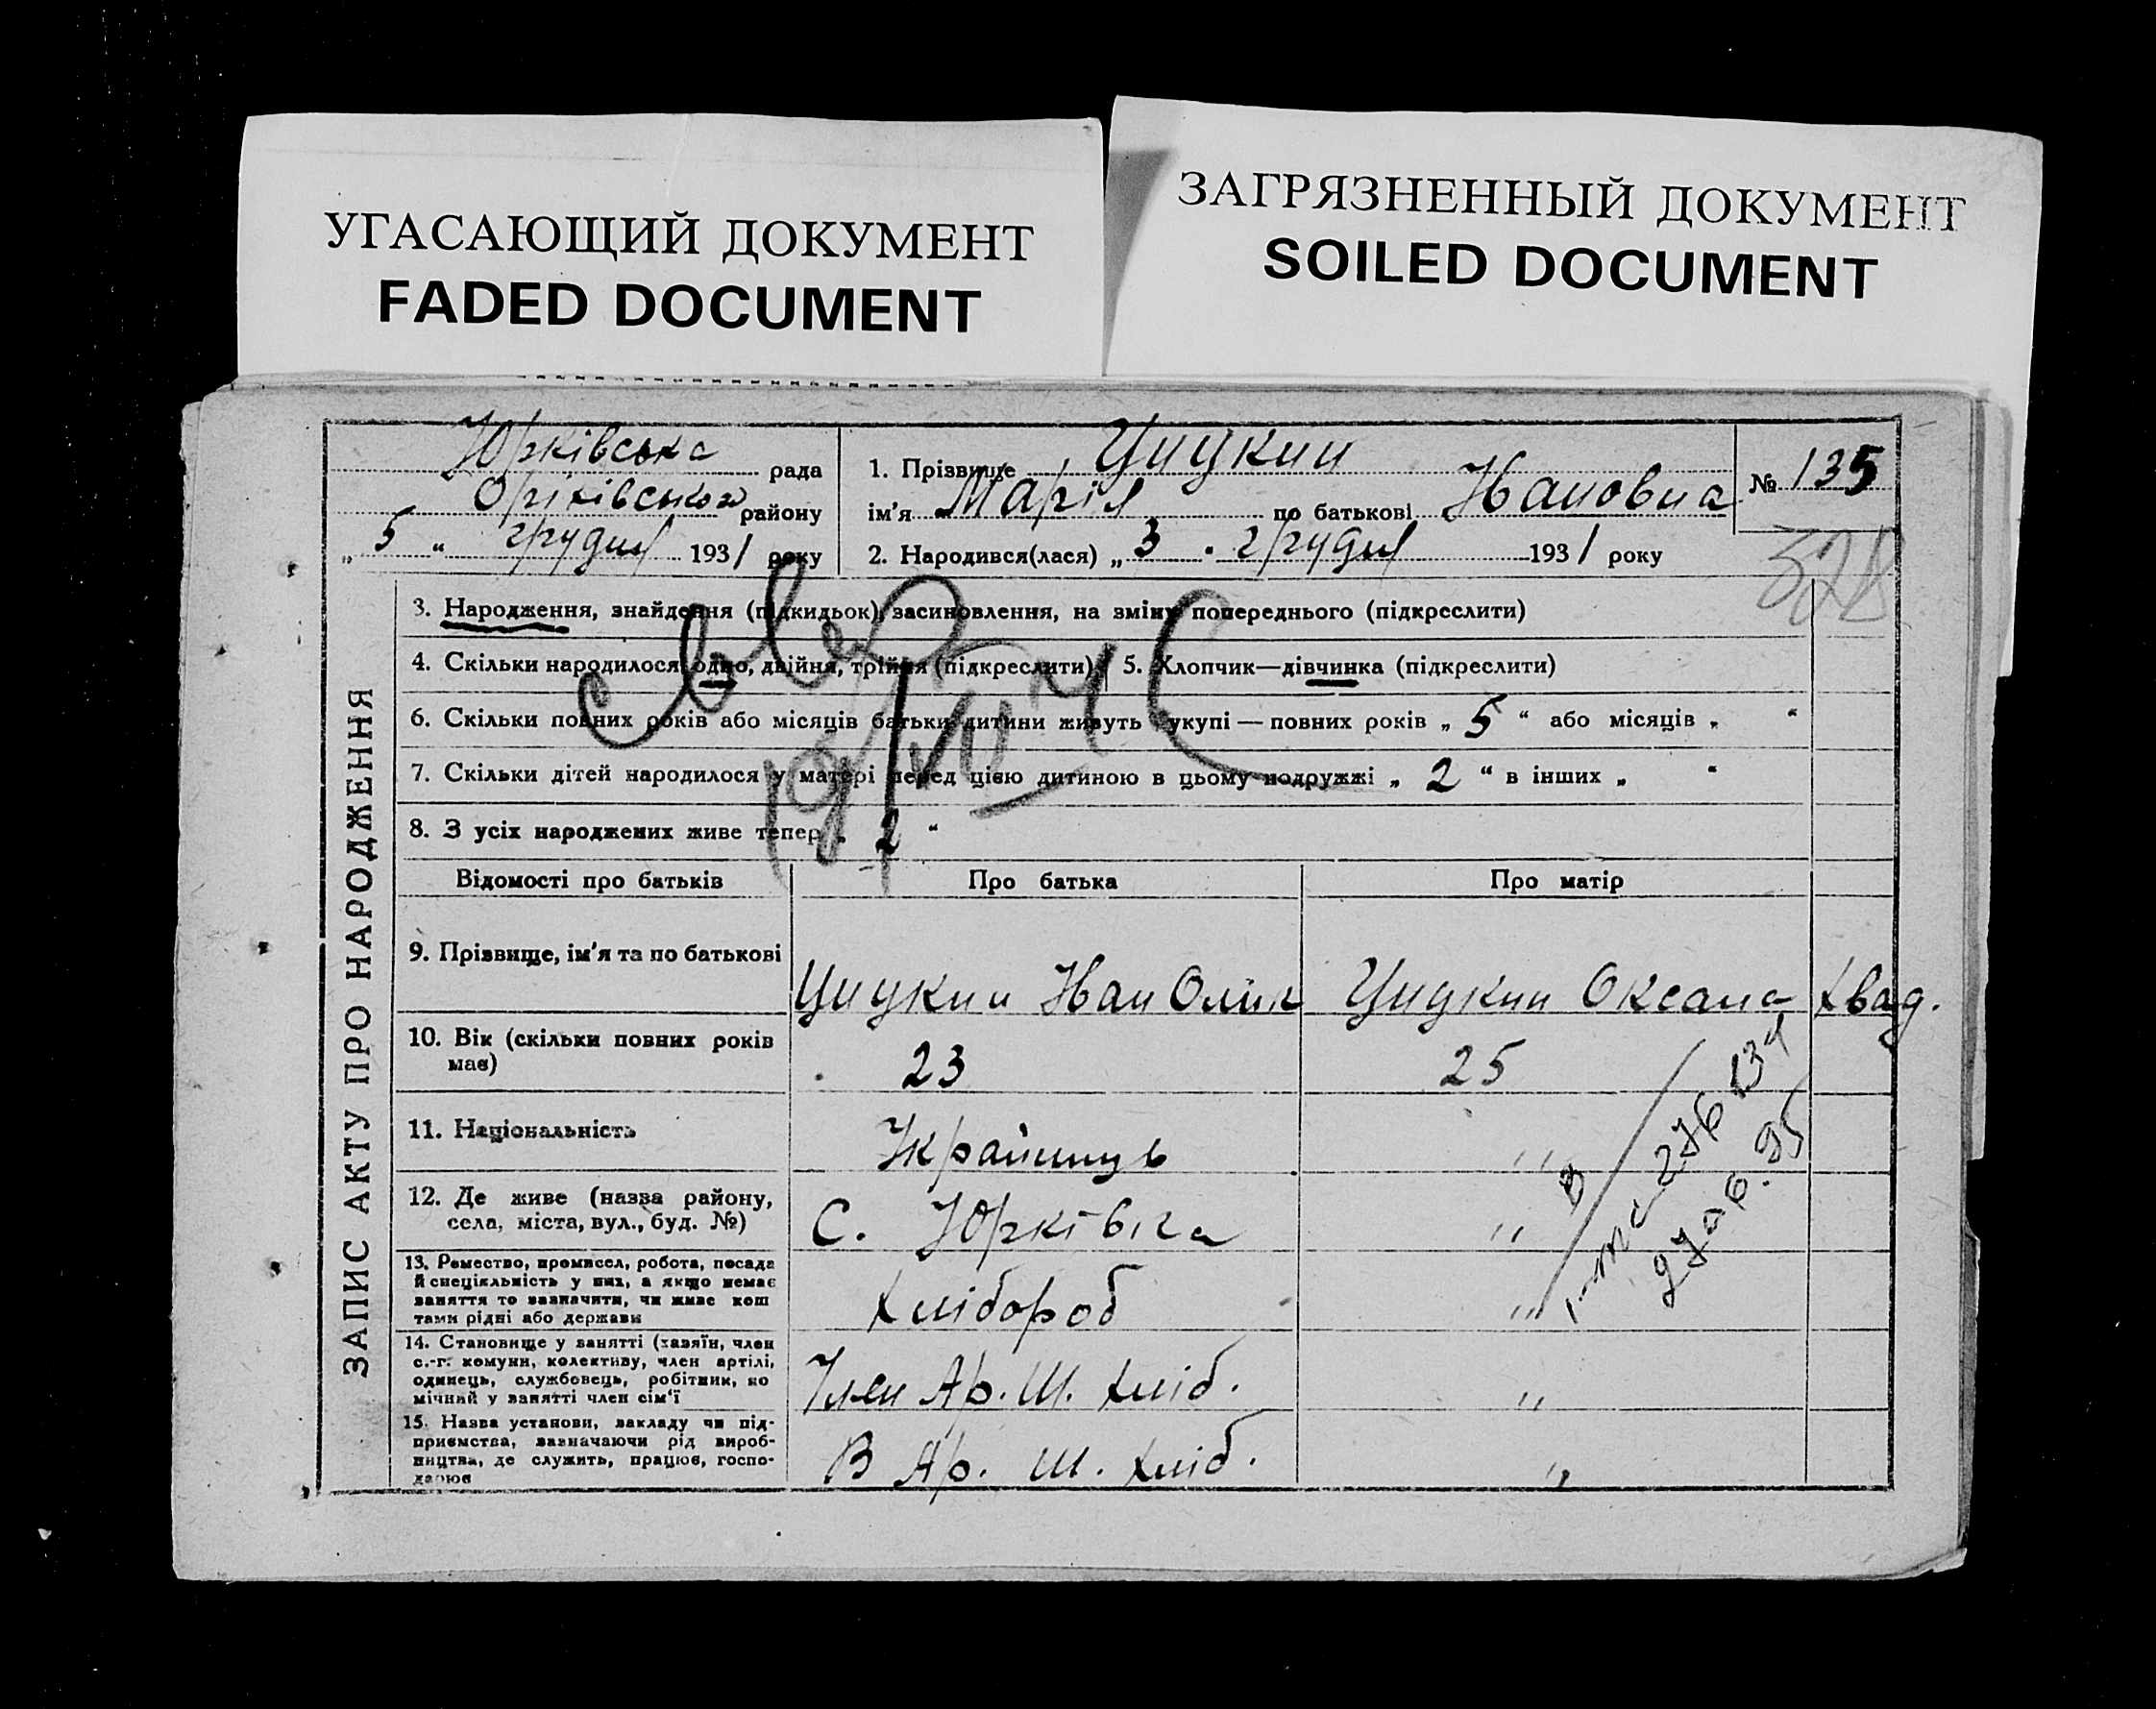 УГАСАЮЩИЙ ДОКУМЕНТ
FADED DOCUMENT
ЗАГРЯЗНЕННЫЙ ДОКУМЕНТ
SOILED DOCUMENT
Юрківська рада
Оріхівського району
„ 5 “ грудня 1931 року
1. Прізвище Цицкин
ім'я Марія по батькові Ивановна
№ 135
2. Народився(лася) „ 3 . грудня 1931 року
3. Народження, знайдення (підкидьок) засиновлення, на зміну попереднього (підкреслити)
4. Скільки народилося одно, двійня, трійня (підкреслити)
5. Хлопчик—дівчинка (підкреслити)
6. Скільки повних років або місяців батьки дитини живуть укупі — повних років „ 5 “ або місяців „ “
7. Скільки дітей народилося у матері перед цією дитиною в цьому подружжі „ 2 “ в інших „ “
8. З усіх народжених живе тепер „ 2 “
ЗАПИС АКТУ ПРО НАРОДЖЕННЯ
Відомості про батьків
Про батька
Про матір
9. Прізвище, ім'я та по батькові
Цицкин Иван Олік
Цицкин Оксана Хвад.
10. Вік (скільки повних років має)
23
25
11. Національність
Українць
„
12. Де живе (назва району, села, міста, вул., буд. №)
С. Юрківка
„
13. Ремество, промисел, робота, посада й спеціяльність у них, а якщо немає заняття то зазначити, чи живе коштами рідні або держави
Хлібороб
„
14. Становище у занятті (хазяїн, член с.-г. комуни, колективу, член артілі, одинець, службовець, робітник, помічний у занятті член сім'ї
Член Ар. Ш. Хліб.
„
15. Назва установи, закладу чи підприємства, зазначаючи рід виробництва, де служить, працює, господарює
В Ар. Ш. Хліб.
„